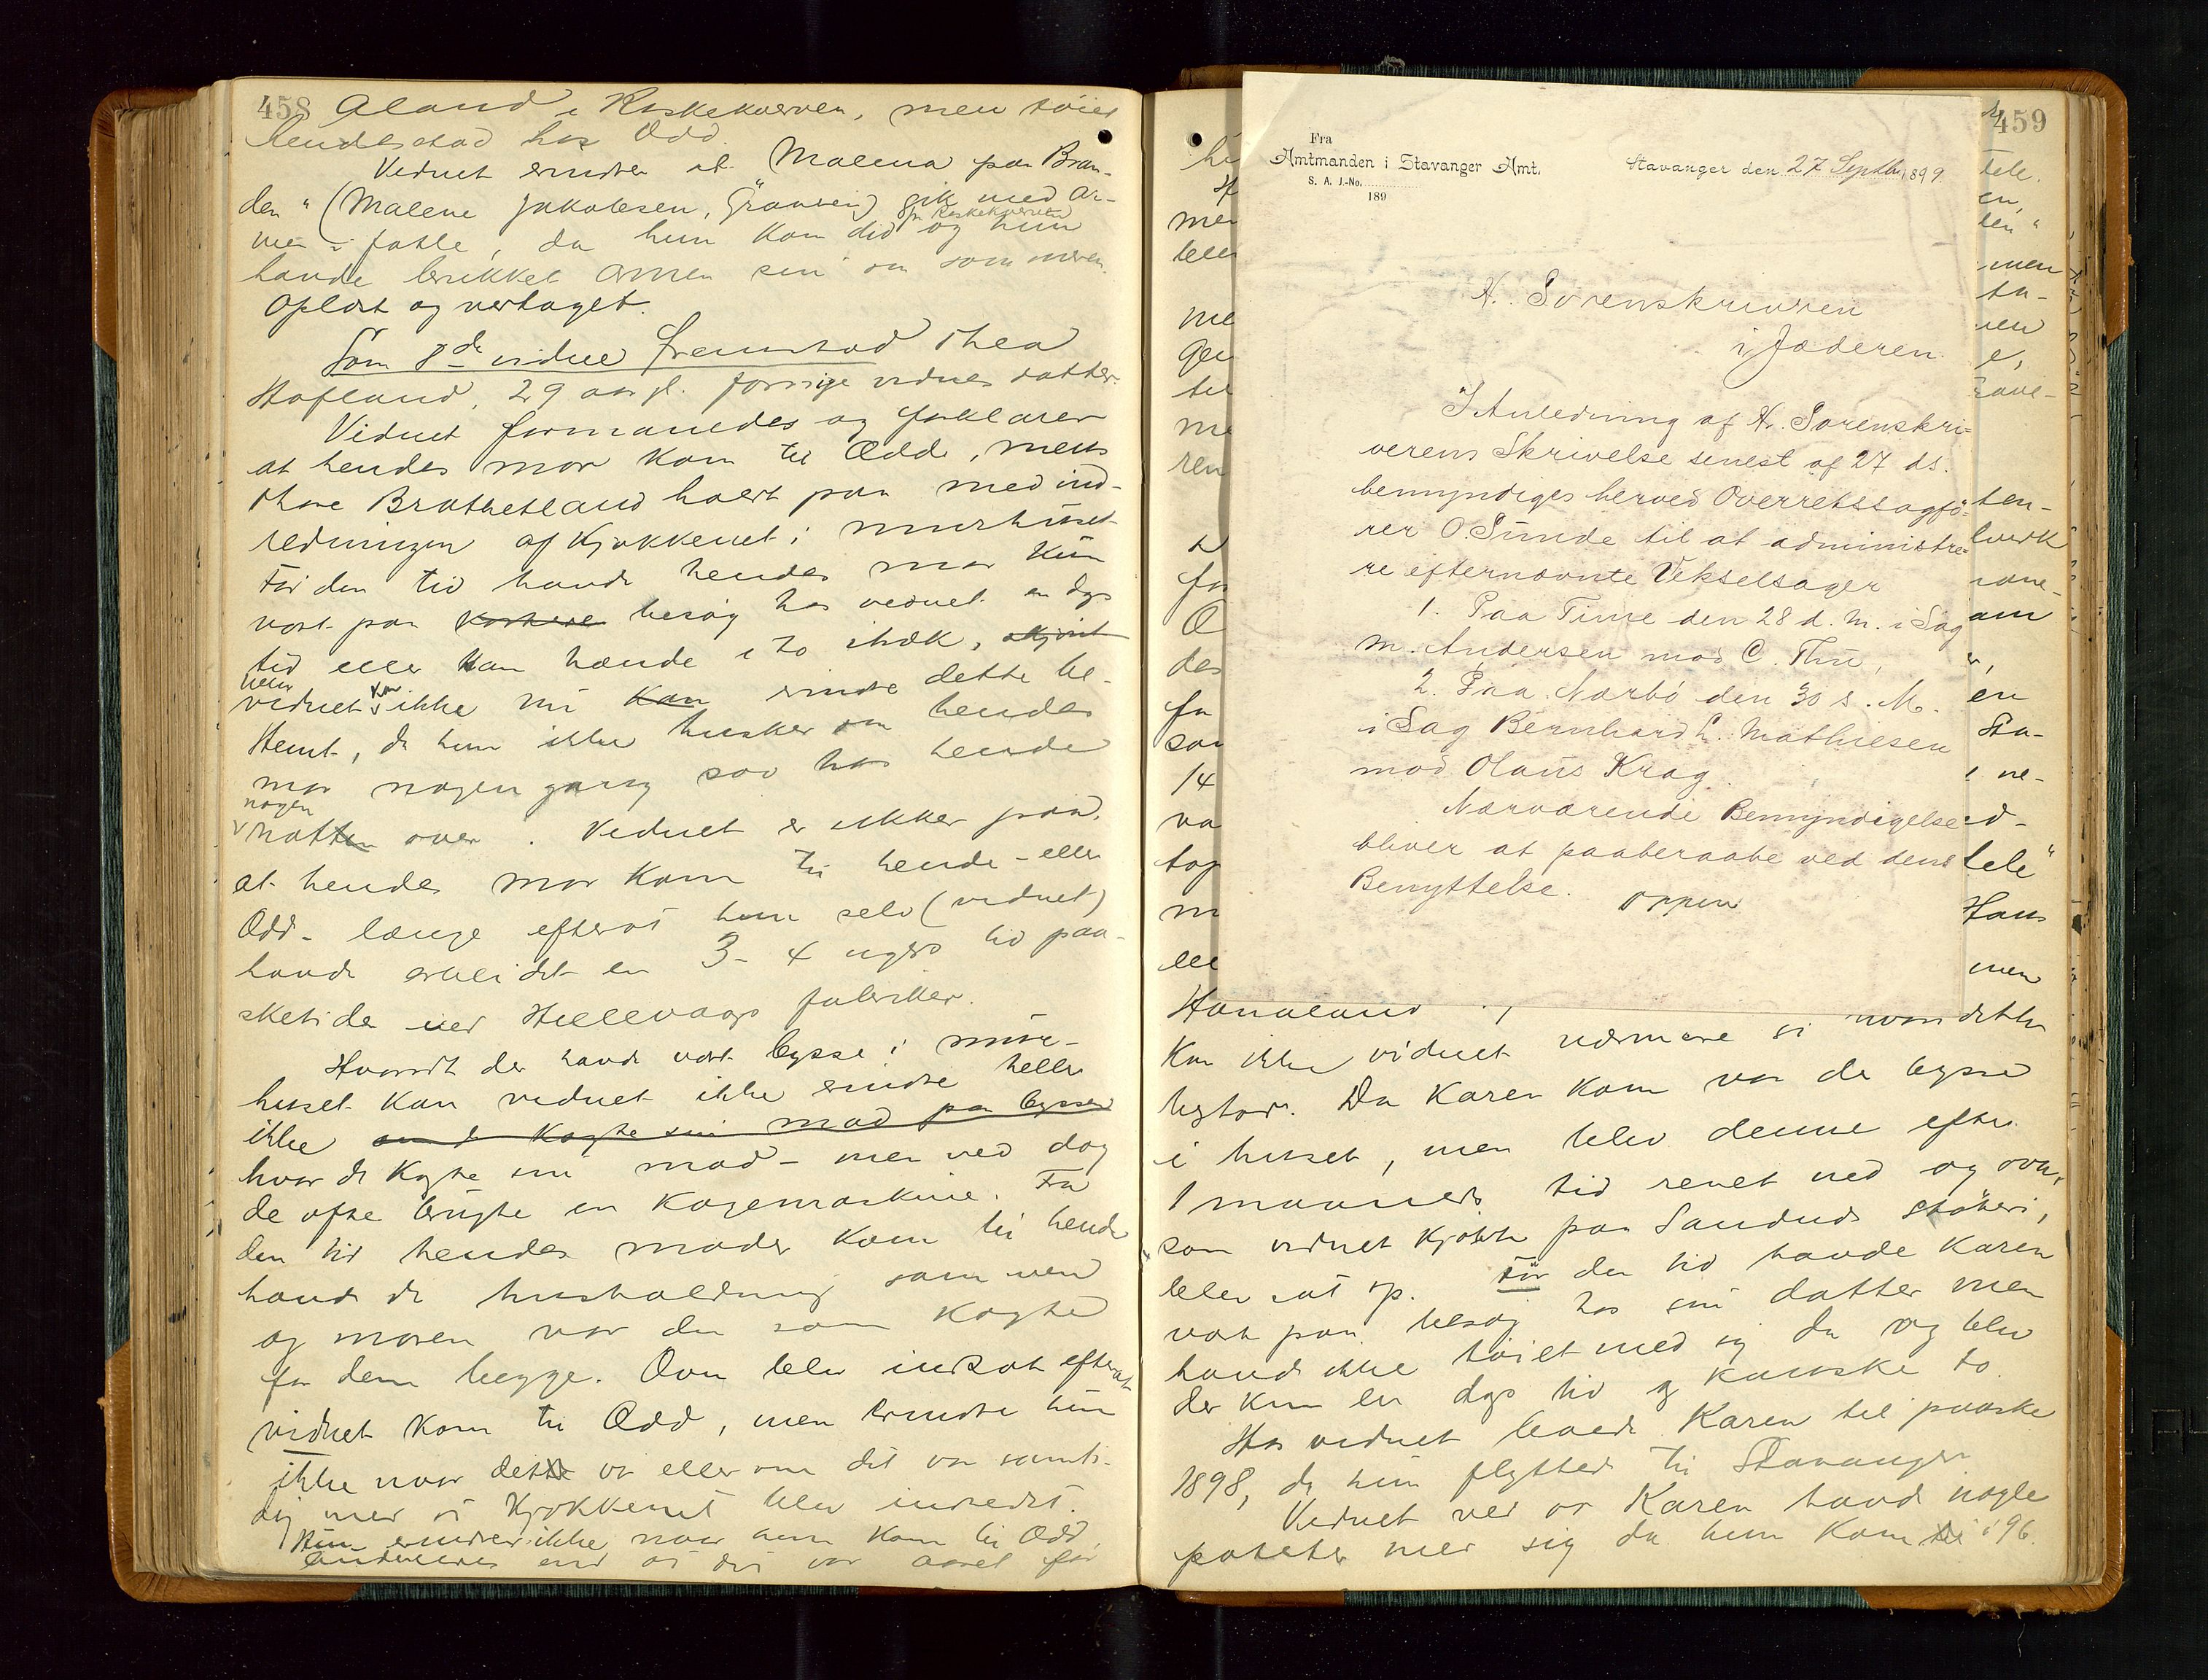 458 Aland i Raskekverven, men töiet
hendes stod hos Odd.
Vidnet erindrer at "Malena paa Bran-
den" (Malene Jakobsen, Graaveri) gik med ar-
men i fatle, da hun kom did fr Raskekverven og hun
havde brukket armen sin om sommeren.
Oplæst og vertaget.
Som 8de vidne fremstod Thea
Hafland, 29 aar gl. forrige vidnes datter.
Vidnet formanedes og forklarer
at hendes mor kom til Odd, mens
Thore Brathetland holdt paa med ind-
redningen af Kjøkkenet i murhuset
Før den tid havde hendes mor kun
vært paa besøg hos vidnet en dags
tid eller kan hænde i to i træk,
vidnet kan ikke nu erindre dette be-
stemt, da hun ikke husker om hendes
mor nogen gang sov hos hende
nogen nat over. Vidnet er sikker paa,
at hendes mor kom til hende - eller
Odd - længe efterat hun selv (vidnet)
havde arbeidet en 3-4 ugers tid paa-
sketider ved Hillevaags fabriker.
Hvorvidt der havde vært bysse i mure-
huset kan vidnet ikke erindre heller
ikke om de kogte sin mad paa byssen
hvor de kogte sin mad - men ved dog
de ofte brugte en kogemaskine. Fra
den tid hendes moder kom til hende
havde de husholdning sammen
og moren var den som kogte
for dem begge. Ovn blev indsat efterat
vidnet kom til Odd, men erindrer hun
ikke naar dette var eller om det var samti-
dig med at Kjøkkenet blev indredet.
Hun erindrer ikke naar hun kom til Odd,
anderledes end at det var aaret før
459
Fra
Amtmanden i Stavanger Amt.
S. A. J.-No.
189
Stavanger den 27 Septbr 1899.
Hr. Sorenskriveren
i Jæderen.
I Anledning af Hr. Sorenskri-
verens Skrivelse senest af 27 ds.
bemyndiges herved Overretssagfø-
rer O. Sunde til at administre-
re efternævnte Vekselsager
1. Paa Time den 28 d. M. i Sag
M. Andersen mod C. Thu,
2. Paa Nærbø den 30 s. M.
i Sag Bernhard L. Mathiesen
mod Olaus Krag.
Nærværende Bemyndigelse
bliver at paaberaabe ved dens
Benyttelse.
Oppen
Hanaland
kan ikke vidnet nærmere si hvem dette
bytor. Da Karen kom var der bysse
i huset, men blev denne efter
1 maaneds tid revet ned og ovn,
som vidnet kjøbte paa Sandnes støberi,
blev sat op. Før den tid havde Karen
vært paa besøg hos sin datter men
havde ikke töiet med sig da og blev
der kun en dags tid og kanske to.
Hos vidnet boede Karen til paaske
1898, da hun flyttede til Stavanger
Vidnet ved at Karen havde nogle
poteter med sig da hun kom i '96.